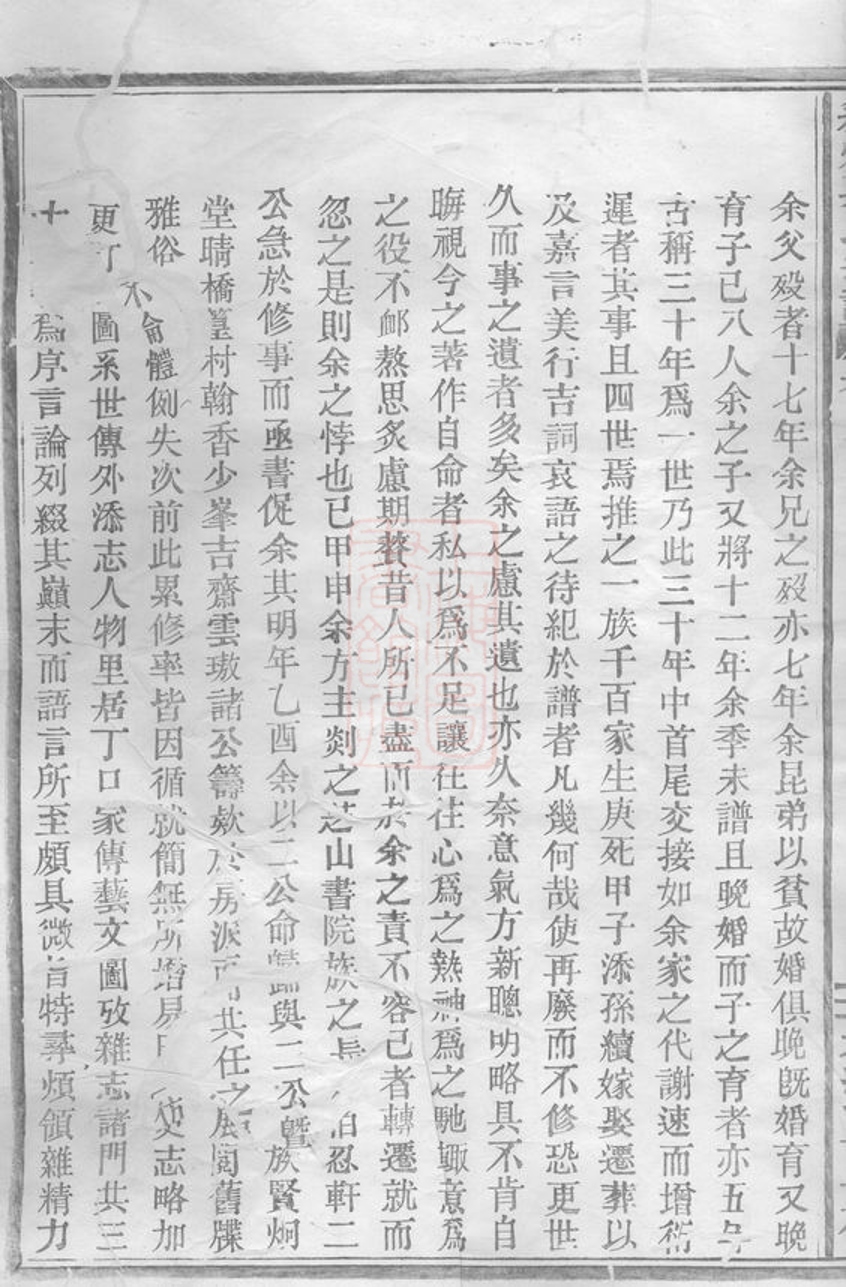 余父歿者十七年余兄之歿亦七年余昆弟以貧故婚俱晚既婚育又晚
育子已八人余之子又將十二年余季未譜且晚婚而子之育者亦五年
古稱三十年爲一世乃此三十年中首尾交接如余家之代謝速而增衍
遲者其事且四世焉推之一族千百家生庚死甲子添孫續嫁娶遷葬以
及嘉言美行吉詞哀語之待紀於譜者凡幾何哉使再廢而不修恐更世
久而事之遺者多矣余之慮其遺也亦久奈意氣方新聰明略具不肯自
晦視今之著作自命者私以爲不足讓往往心爲之熱神爲之馳輙意爲
之役不卹熬思炙慮期賛昔人所已盡而於余之責不容已者轉遷就而
忽之是則余之悖也已甲申余方主剡之芝山書院族之長伯忍軒二
公急於修事而亟書促余其明年乙酉余以二公命歸與二公曁族賢炯
堂晴橋篁村翰香少峯吉齋雲璈諸公籌欵於房派而共任之展閱舊牒
雅俗不侖體例失次前此累修率皆因循就簡無所增易史志略加
更訂圖系世傳外添志人物里居丁口冢傳藝文圖攷雜志諸門共三
十爲序言論列綴其巓末而語言所至頗具微旨特尋煩領雜精力